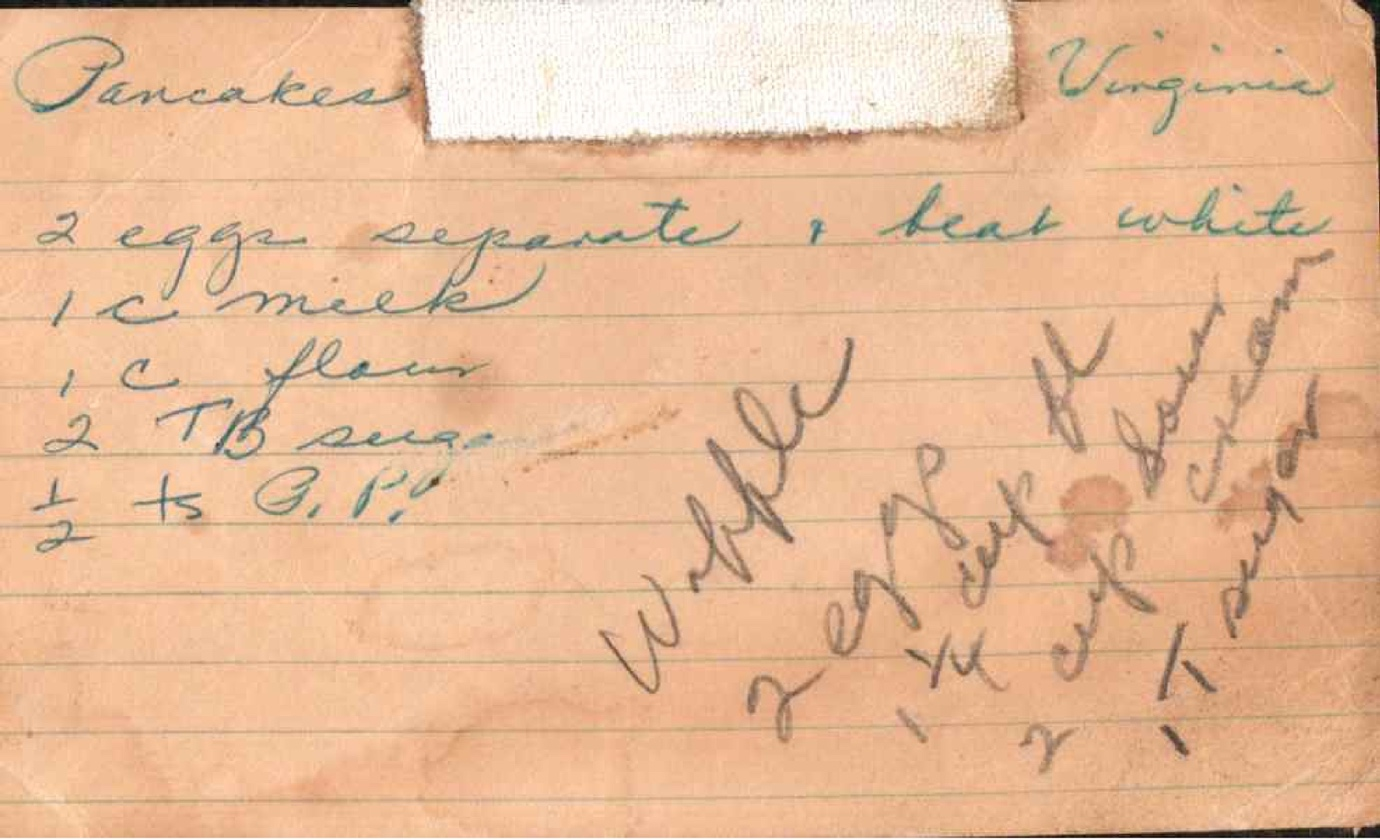 Pancakes Virginia
2 eggs separate & beat white
1 c milk
1 c flour
2 TB suga
1/2 ts B. P.
Waffle
2 eggs
1 1/4 cup fl
2 cup sour
cream
1 T sugar